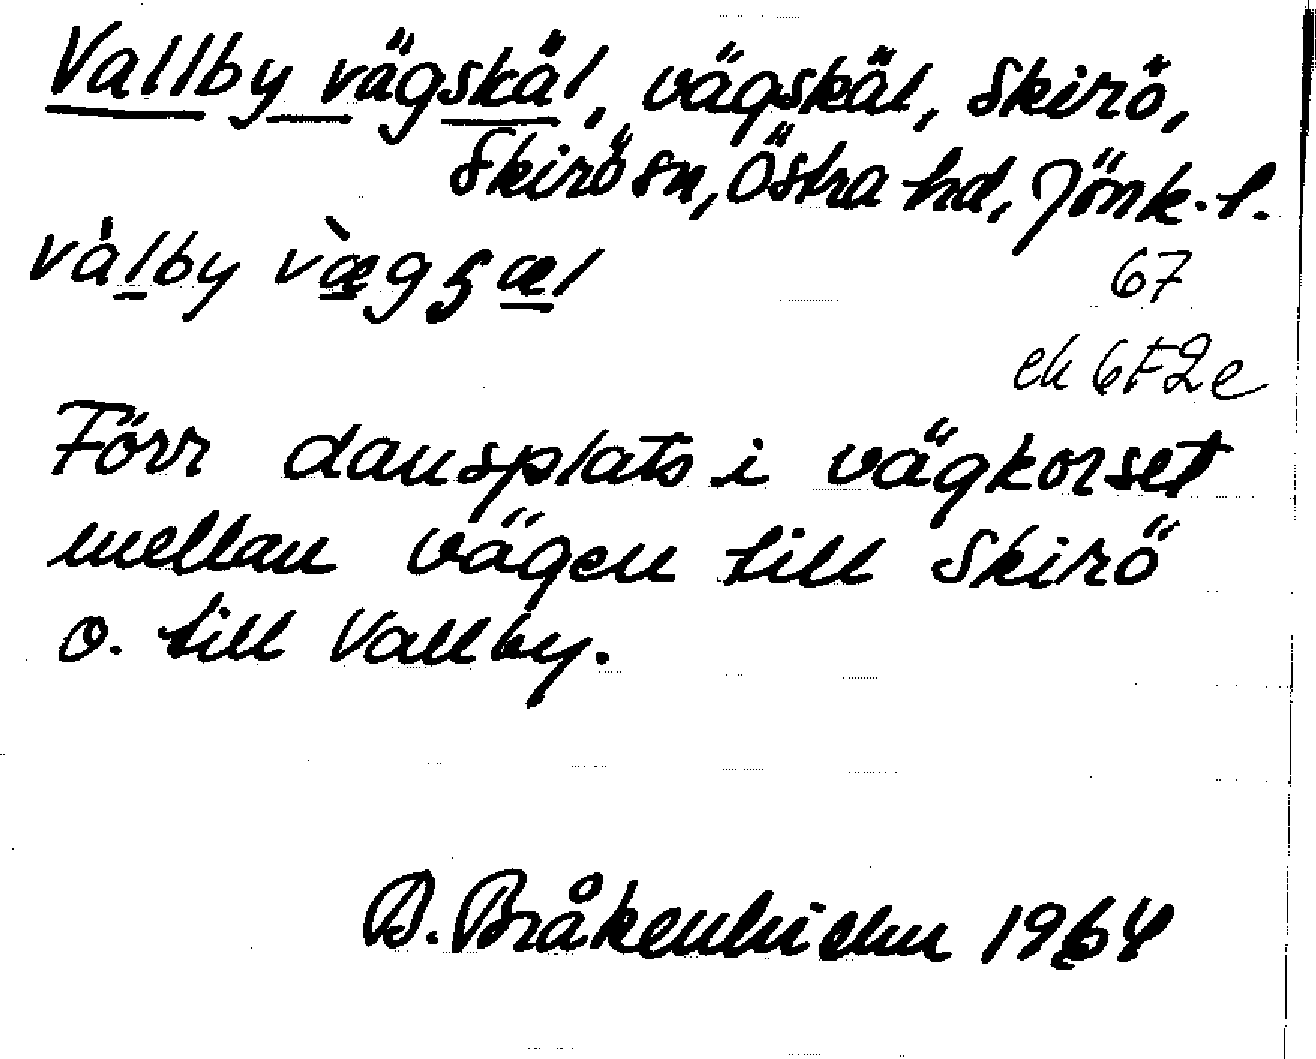 Vallby vägskäl, vägskäl, Skirö,
Skirö sn, Östra hd, Jönk. l.
vàlby væ̀gʂæl
67
ek 6F2e
Förr dansplats i vägkorset
mellan vägen till Skirö
o. till Vallby.
B. Bråkenhielm 1964